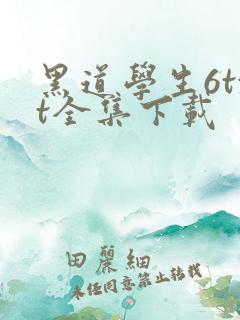 黑道學生6t
t全集下載
田麗細
未经同意禁止转载